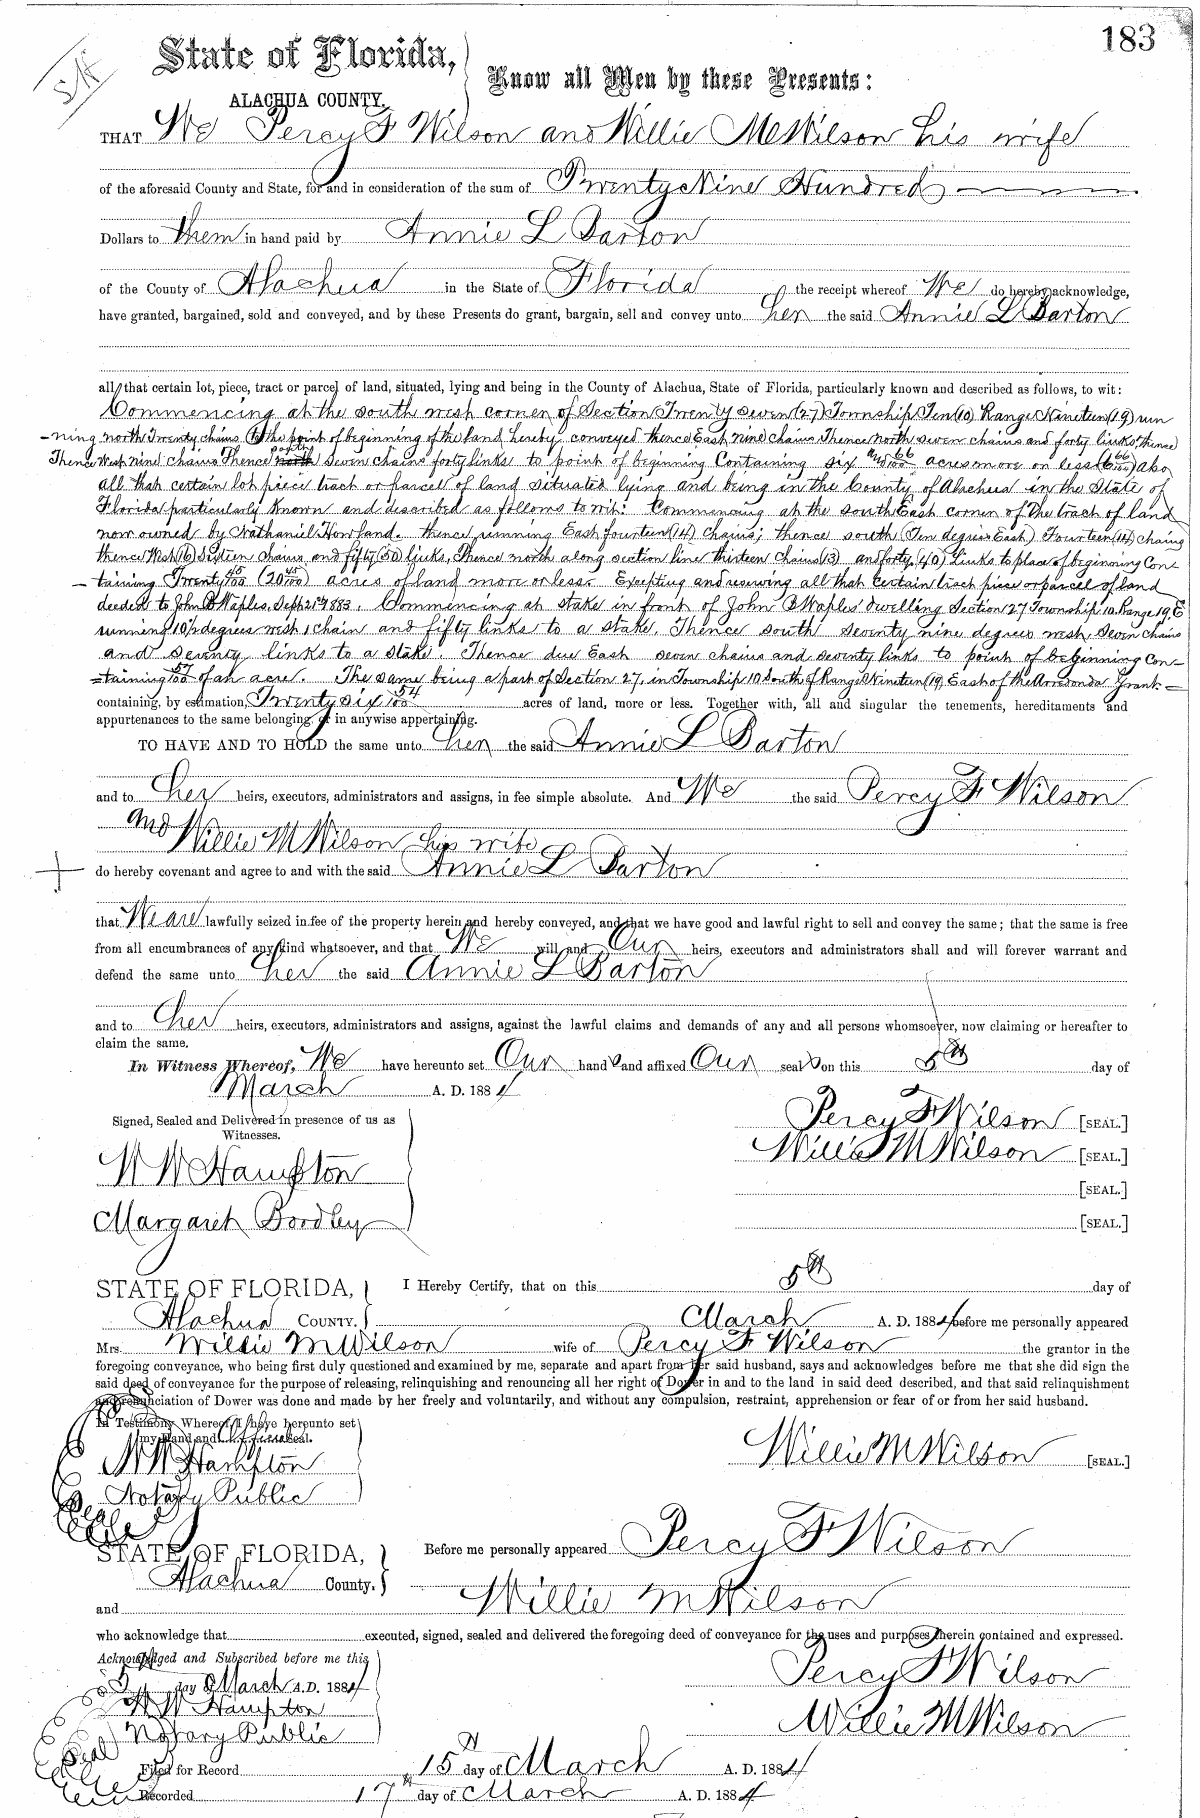 183
S/H
State of Florida,
Know all Men by these Presents:
ALACHUA COUNTY.
THAT We Percy F Wilson and Willie M Wilson his wife
of the aforesaid County and State, for and in consideration of the sum of Twenty Nine Hundred
Dollars to them in hand paid by Annie L Barton
of the County of Alachua in the State of Florida the receipt whereof We do hereby acknowledge,
have granted, bargained, sold and conveyed, and by these Presents do grant, bargain, sell and convey unto her the said Annie L Barton
all that certain lot, piece, tract or parcel of land, situated, lying and being in the County of Alachua, State of Florida, particularly known and described as follows, to wit:
Commencing at the south west corner of Section Twenty seven (27) Township Ten (10) Range Nineteen (19) run
-ning north Twenty chains to the point of beginning of the land hereby conveyed thence East nine chains Thence north seven chains and forty links, thence
Thence West nine chains Thence south north seven chains forty links to point of beginning Containing six and 66/100 acres more or less (6 66/100) also
all that certain lot piece tract or parcel of land situated lying and being in the County of Alachua in the State of
Florida particularly known and described as follows to wit: Commencing at the south East corner of the tract of land
now owned by Nathaniel Howland. thence running East fourteen (14) chains; thence south (Ten degrees East) Fourteen (14) chains
thence West (16) Sixteen chains and fifty (50) links, Thence north along section line thirteen chains (13) and forty (40) Links to place of beginning Con-
-taining Twenty 45/100 (20 45/100) acres of land more or less. Excepting and reserving all that certain tract piece or parcel of land
deeded to John B Waples, Sept 21st 1883. Commencing at stake in front of John B Waples' dwelling Section 27 Township 10 Range 19 E
running 10 1/2 degrees west 1 chain and fifty links to a stake. Thence south seventy nine degrees west seven chains
and seventy links to a stake. Thence due East seven chains and seventy links to point of beginning Con-
-taining 57/100 of an acre. The same being a part of Section 27 in Township 10 South of Range Nineteen (19) East of the Arredonda Grant
containing, by estimation, Twenty six 54/100 acres of land, more or less. Together with, all and singular the tenements, hereditaments and
appurtenances to the same belonging, or in anywise appertaining.
TO HAVE AND TO HOLD the same unto her the said Annie L Barton
and to her heirs, executors, administrators and assigns, in fee simple absolute. And We the said Percy F Wilson
and Willie M Wilson his wife
do hereby covenant and agree to and with the said Annie L Barton
that We are lawfully seized in fee of the property herein and hereby conveyed, and that we have good and lawful right to sell and convey the same; that the same is free
from all encumbrances of any kind whatsoever, and that We will and Our heirs, executors and administrators shall and will forever warrant and
defend the same unto her the said Annie L Barton
and to her heirs, executors, administrators and assigns, against the lawful claims and demands of any and all persons whomsoever, now claiming or hereafter to
claim the same.
In Witness Whereof, We have hereunto set Our hands and affixed Our seals on this 5th day of
March A. D. 1884
Signed, Sealed and Delivered in presence of us as
Witnesses.
Percy F Wilson [SEAL.]
Willie M Wilson [SEAL.]
W W Hampton
[SEAL.]
Margaret Bodley
[SEAL.]
STATE OF FLORIDA,
I Hereby Certify, that on this 5th day of
Alachua COUNTY.
March A. D. 1884 before me personally appeared
Mrs. Willie M Wilson wife of Percy F Wilson the grantor in the
foregoing conveyance, who being first duly questioned and examined by me, separate and apart from her said husband, says and acknowledges before me that she did sign the
said deed of conveyance for the purpose of releasing, relinquishing and renouncing all her right of Dower in and to the land in said deed described, and that said relinquishment
and renunciation of Dower was done and made by her freely and voluntarily, and without any compulsion, restraint, apprehension or fear of or from her said husband.
In Testimony Whereof, I have hereunto set
my hand and Official seal.
W W Hampton
Willie M Wilson [SEAL.]
Notary Public
Seal
STATE OF FLORIDA,
Before me personally appeared Percy F Wilson
Alachua County.
and Willie M Wilson
who acknowledge that executed, signed, sealed and delivered the foregoing deed of conveyance for the uses and purposes therein contained and expressed.
Acknowledged and Subscribed before me this
5th day March A.D. 1884
Percy F Wilson
W W Hampton
Willie M Wilson
Notary Public
Seal
Filed for Record 15th day of March A. D. 1884
Recorded 17th day of March A. D. 1884